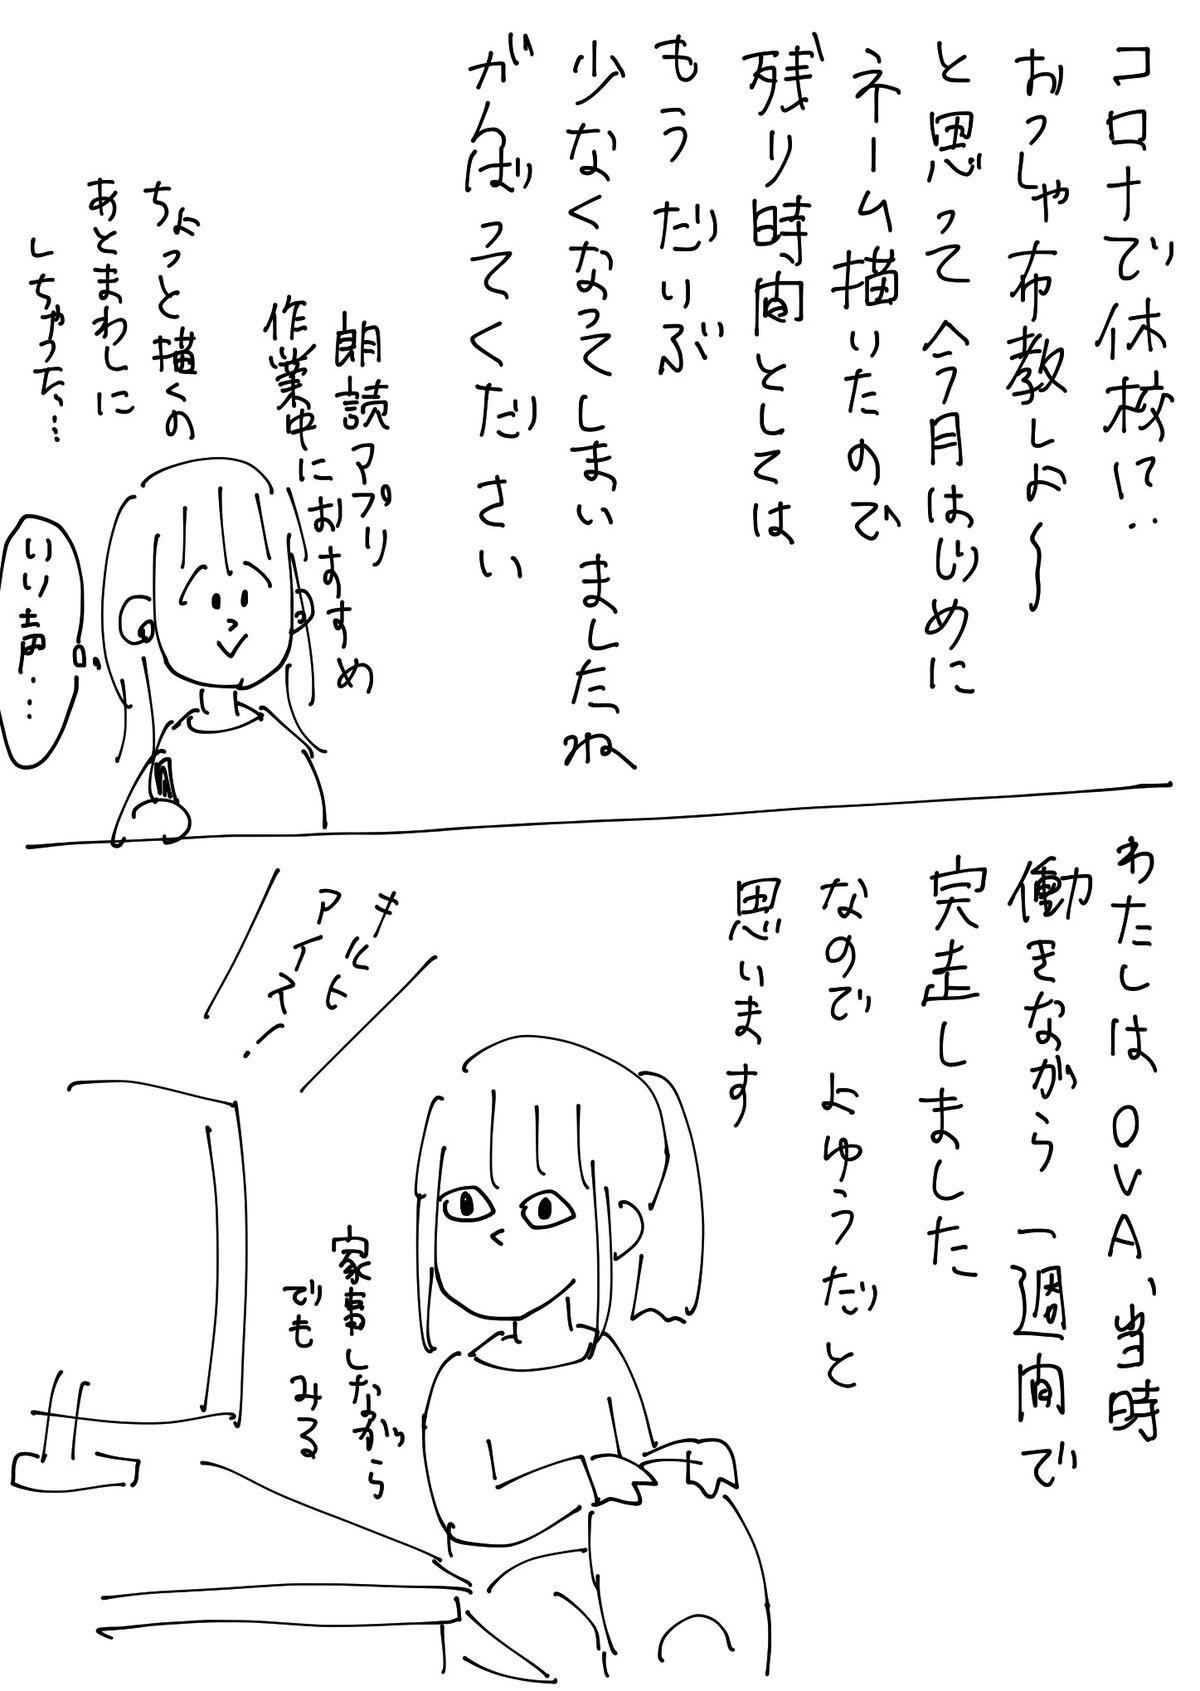 コロナで休校!?
おっしゃ布教しよ〜
と思って今月はじめに
ネーム描いたので
残り時間としては
もうだいぶ
少なくなってしまいましたね
がんばってください
朗読アプリ
作業中におすすめ
ちょっと描くの
あとまわしに
しちゃった…
いい声…
わたしはOVA、当時
働きながら一週間で
完走しました
なのでよゆうだと
思います
キルヒ
アイス!
家事しながら
でもみる